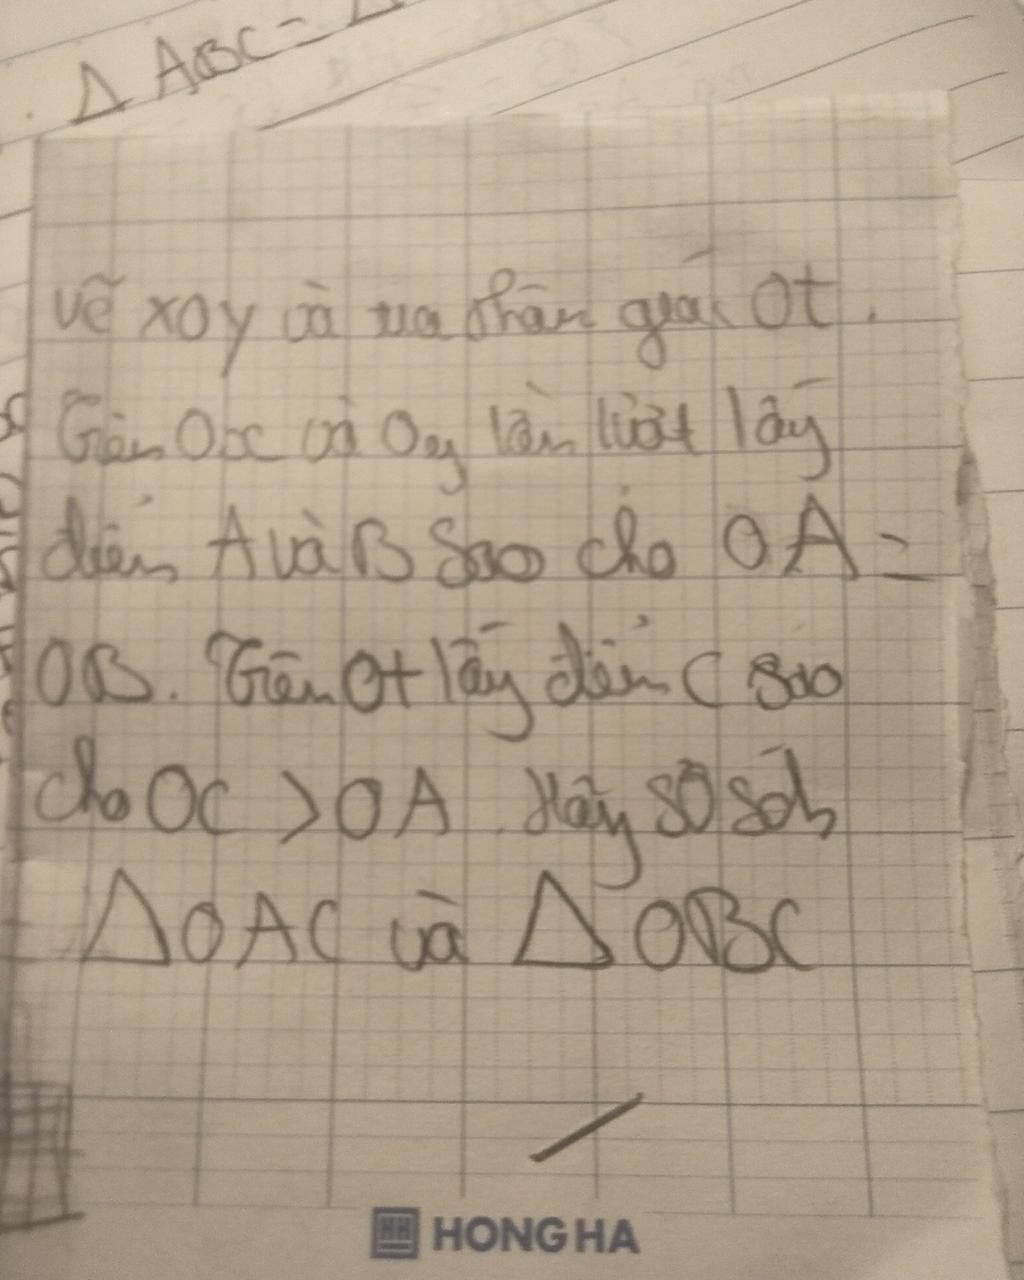 Δ ABC =
Vẽ xOy và tia phân giác Ot.
Trên Ox và Oy lần lượt lấy
điểm A và B sao cho OA =
OB. Trên Ot lấy điểm C sao
cho OC > OA. Hãy so sánh
Δ OAC và Δ OBC
HH HONG HA